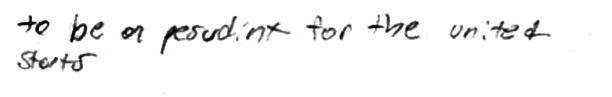 to be a pesudint for the united
Starts